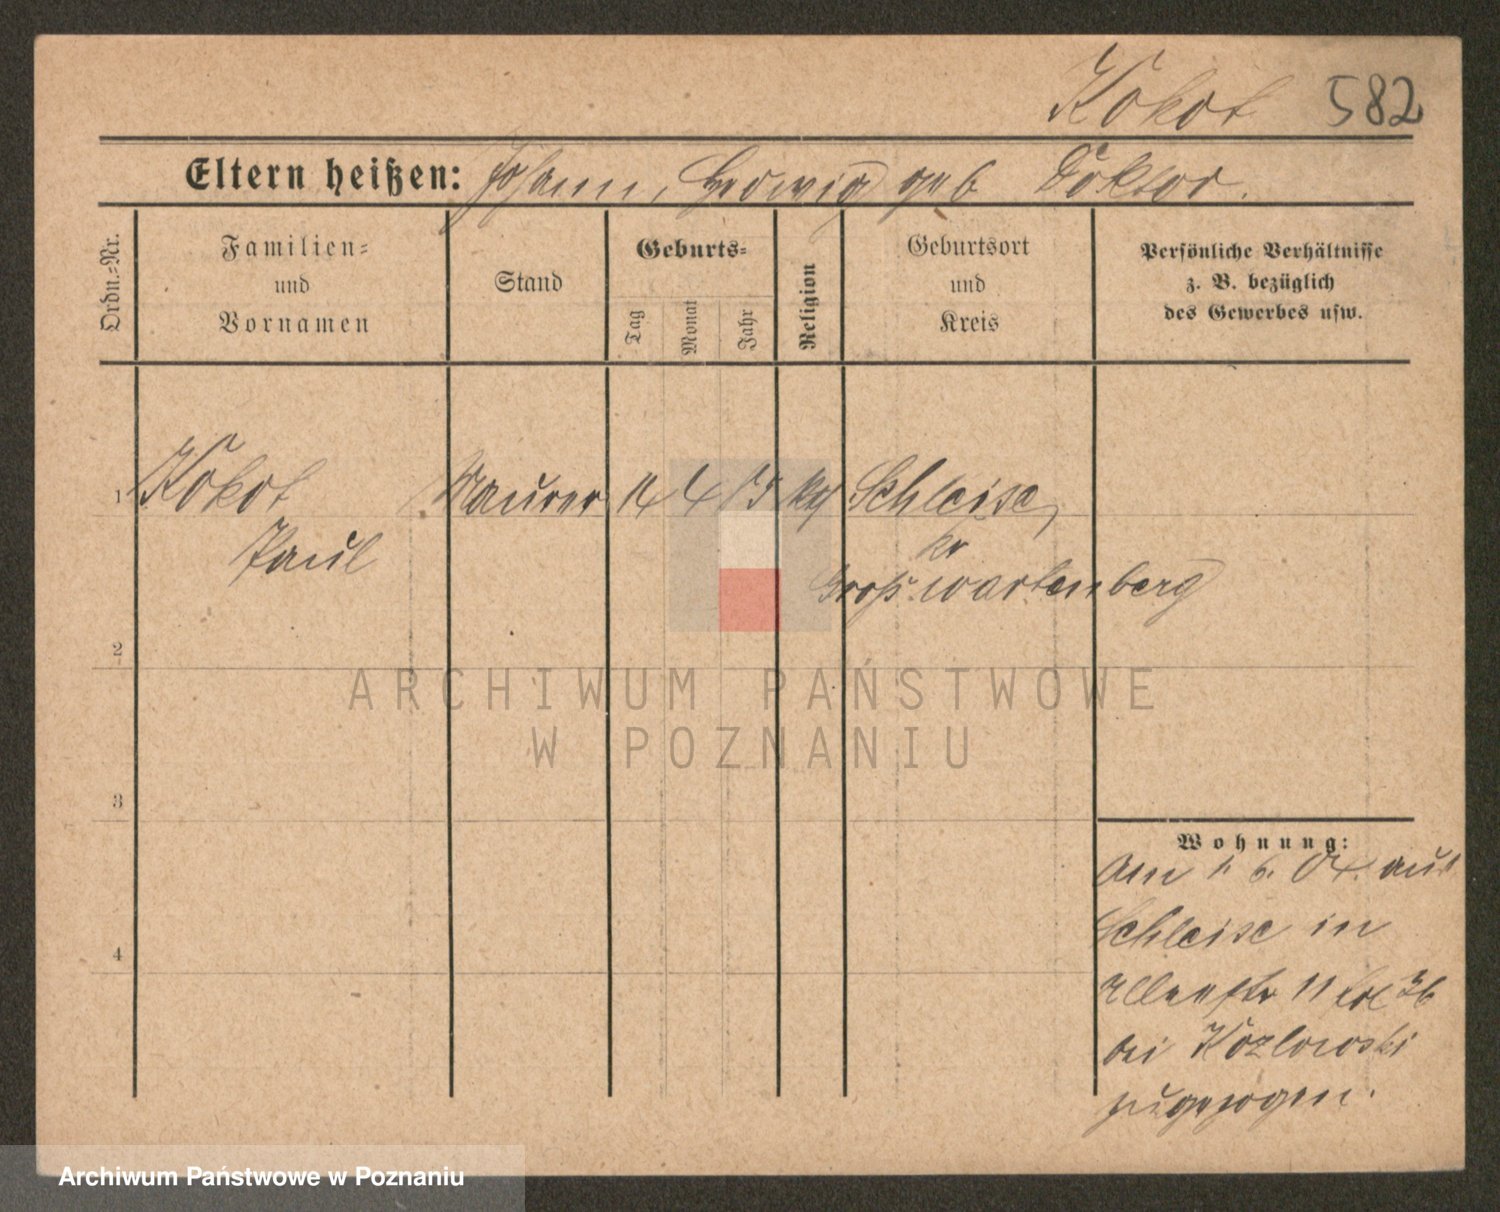 Kokot 582
Eltern heißen: Johann, Hedwig geb Doktor.
Ordn.=Nr.
Familien=
und
Vornamen
Stand
Geburts=
Tag
Monat
Jahr
Religion
Geburtsort
und
Kreis
Persönliche Verhältnisse
z. B. bezüglich
des Gewerbes usw.
1 Kokot Maurer 14 4 kth Schleise,
Paul Kr
Groß wartenberg
2
ARCHIWUM PAŃSTWOWE
W POZNANIU
3
Wohnung:
Am 1. 6. 04. aus
4 Schleise in
11 36
bei Kozlowski
zugezogen.
Archiwum Państwowe w Poznaniu